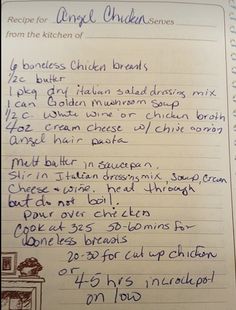 Recipe for Angel Chicken Serves
from the kitchen of
6 boneless Chicken breasts
1/2 c butter
1 pkg dry italian salad dressing mix
1 can Golden Mushroom Soup
1/2 c. white wine or chicken broth
4 oz cream cheese w/ chive & onion
angel hair pasta
Melt butter in saucepan.
Stir in Italian dressing mix, soup, cream
cheese & wine. heat through
but do not boil.
Pour over chicken
Cook at 325 50-60 mins for
boneless breasts
20-30 for cut up chicken
or
4-5 hrs in crockpot
on low